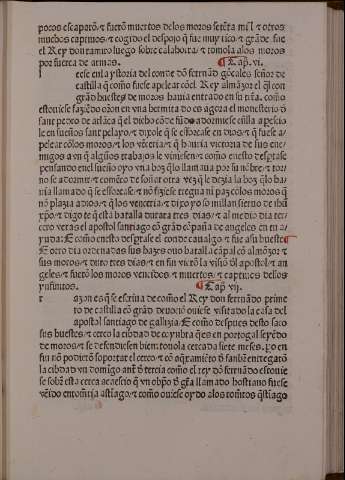 pocos escaparō. & fuerō muertos de los moros setēta mil & otros
muchos captiuos. & cogido el despojo q̄ fue muy rico & grāde fue
el Rey don ramiro luego sobre calahorra. & tomola a los moros
por fuerça de armas. ¶ Cap̄. vi.
l eese en la ystoria del conde dō ferrād gōçales señor de
castilla q̄ como fuese a pelear cō el Rey almāzor el q̄l con
grād huestes de moros hauia entrado en su tr̄ra. como
estouiese faziēdo oraçiō en vna hermita do es agora el monesterio d̄
sant pedro de arlāça q̄ el dicho cōde fū dador miese ēlla apesçio
le en sueños sant pelayo. & dixole q̄ se esforçase en dios & q̄ fuese a
pelear cō los moros & los vēçeria. & q̄ hauria victoria de sus ene-
migos avn q̄ algunos trabajos le viniesen. & como
pensando en el sueño oyo vna boz q̄ lo llamaua por su nōbre & tor-
no se a dormir. & comēço de soñar otra vez q̄ le dezia la boz q̄ lo ha-
uia llamado q̄ se esforçase. & nō fiziese tregua ni paz cō los moros q̄
nō plazia a dios & q̄ los vençeria & dixo yo so millan sieruo de ihū
xp̄o & digo te q̄ esta batalla durara tres dias. & al medio dia ter-
çero veras el apostol santiago cō grād cōpaña de angeles en tu a-
yuda: E como el conde caualgo & fue a su hueste ¶
E otro dia ordinadas sus hazes ouo batalla cāpal cō almāzor &
sus moros & duro tres dias. & en fin vierō la visiō d̄l apostol & an
geles. & fuerō los moros vençidos & muertos & captiuos dellos
ynfinitos. ¶ Cap̄. vij.
r azon es q̄ se escriua de como el Rey don fernando prime
ro de castilla cō grād deuoçiō ouiese visitado la casa del
apostol santiago de gallizia: E como despues desto saco
sus huestes. & çerco la çibdad de coynbra q̄ es en portogal seyēdo
de moros. & se defendiesen bien: touola çercada siete meses. E o en
fin nō podierō soportar el çerco & cō q̄ ouierō d̄ fanbre entregarō
la çibdad vn domīgo ant̄ d̄ terçia como el rey dō fernādo estouie
se sob̄ esta çerca acaesçio q̄ vn obp̄o d̄ greçia llamado hostiano fuese
venido en romeria a satiago. & como ouiese oydo a los romeros q̄ satiago